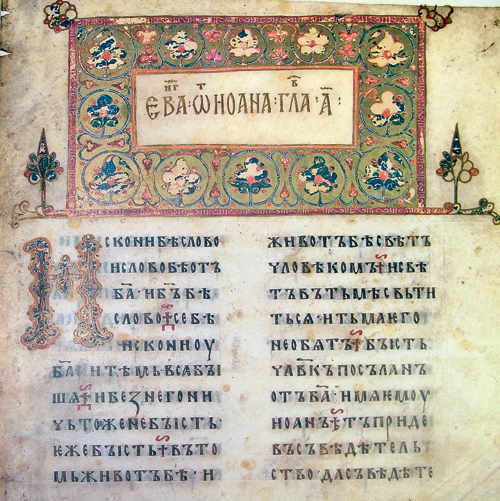 ЕВАⷩ҇ⷢ҇·Ѿ ИОАНА·ГЛАⷡ҇·А҃:
ИСКОНИБѢСЛОВО
ИСЛОВОБѢОТЪ
БА҃·ИБЪ҃БѢ
СЛОВО·СЕБѢ
ИСКОНИОУ
БА҃·ИТѢМЬВСАБЫ
ШѦ·ИБЕЗНЕГОНИ
ЧЬТОЖЕНЕБЫСТЬ
ЕЖЕБЫСТЬ·ВЪТО
МЬЖИВОТЪБѢ·И
ЖИВОТЪБѢСВѢТЪ
ЧЛОВѢКОМЪ·ИСВѢ
ТЪВЪТЬМѢСВЬТИ
ТЬСѦ·ИТЬМАЕГО
НЕОБѦТЪ·БЫСТЬ
ЧЛ҃ВКЪПОСЪЛАНЪ
ОТЪБА҃·ИМѦЕМОУ
ИОАНЪ·ТЪПРИДЕ
ВЪСЪВѢДѢТЕЛЬ
СТВО·ДАСЪВѢДѢТЕ